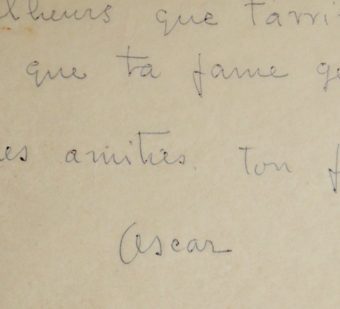 lheurs que t'arri
que ta fame ge
es amities. Ton f
Oscar